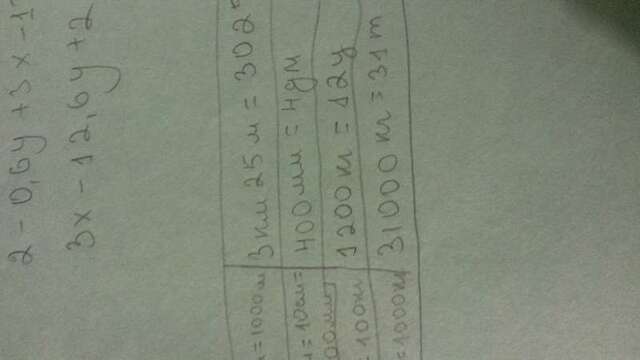 2 - 0,6y + 3x - 1
3x - 12,6y + 2
=1000м 3км 25м = 3025
=10см= 400мм = 4дм
00мм
=100кг 1200кг = 12ц
=1000кг 31000кг = 31т